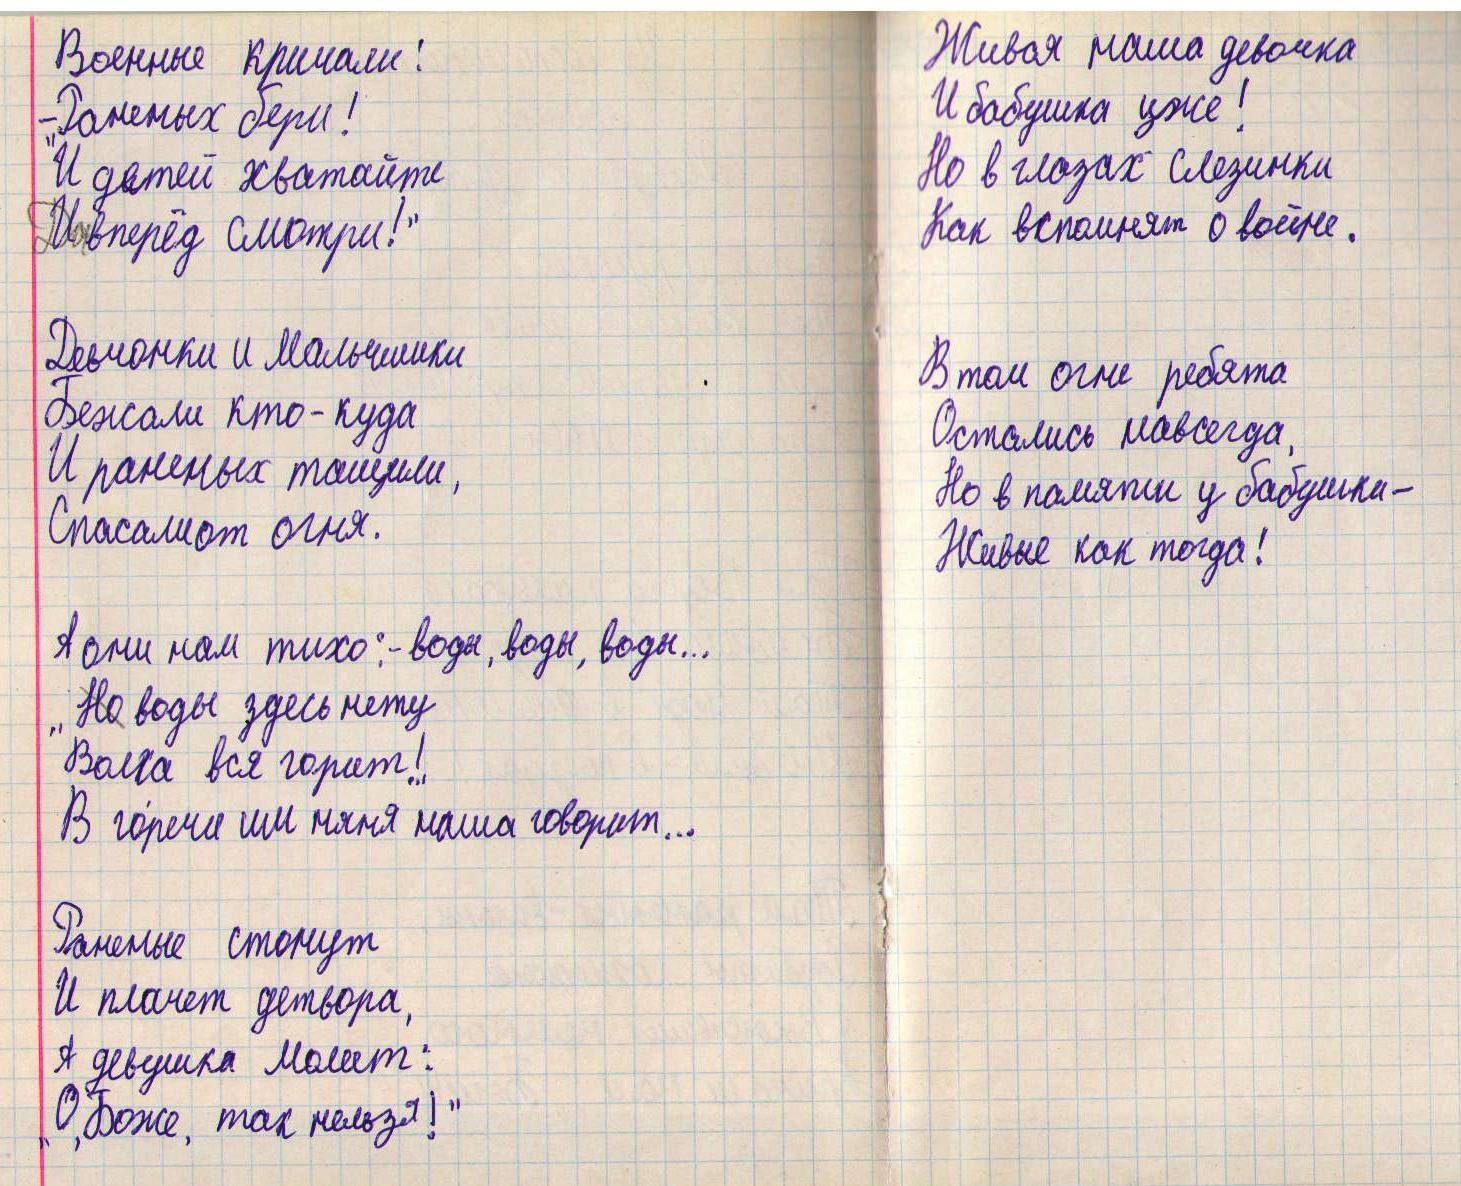 Военные кричали!
-„Раненых бери!
И детей хватайте
И вперёд смотри!"
Девчонки и Мальчишки
Бежали кто-куда
И раненых тащили,
Спасали от огня.
А они нам тихо:- воды, воды, воды...
„Но воды здесь нету
Волга вся горит!"
В горечи им няня наша говорит...
Раненые стонут
И плачет детвора,
А девушка Молит:
„О, Боже, так нельзя!"
Живая наша девочка
И бабушка уже!
Но в глазах слезинки
Как вспомнят о войне.
В том огне ребята
Остались навсегда,
Но в памяти у бабушки-
Живые как тогда!